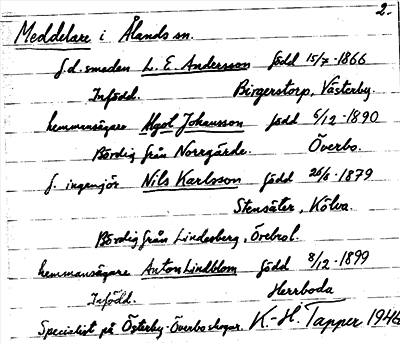 2.
Meddelare i Ålands sn.
f.d. smeden L. E. Andersson född 15/7-1866
Infödd. Birgerstorp, Västerby.
hemmansägare Algot Johansson född 6/12-1890
Bördig från Norrgårde. Överbo.
f. ingenjör Nils Karlsson född 26/6-1879
Stensäter, Kölva.
Bördig från Lindesberg, Örebrol.
hemmansägare Anton Lindblom född 8/12-1899
Infödd. Herrboda
Specialist på Österby-Överbo skogar. K.-H. Tapper 1946